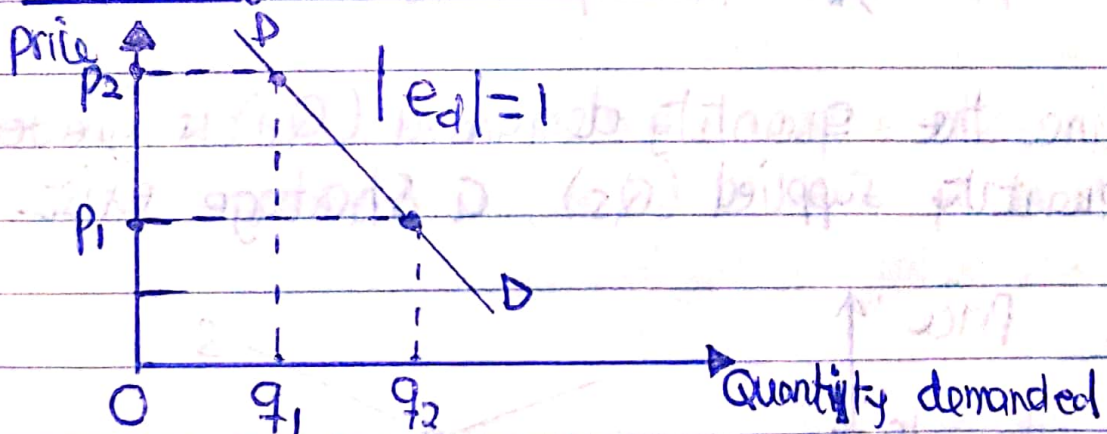 D
Price
P2
|ed|=1
P1
D
O q1 q2 Quantity demanded